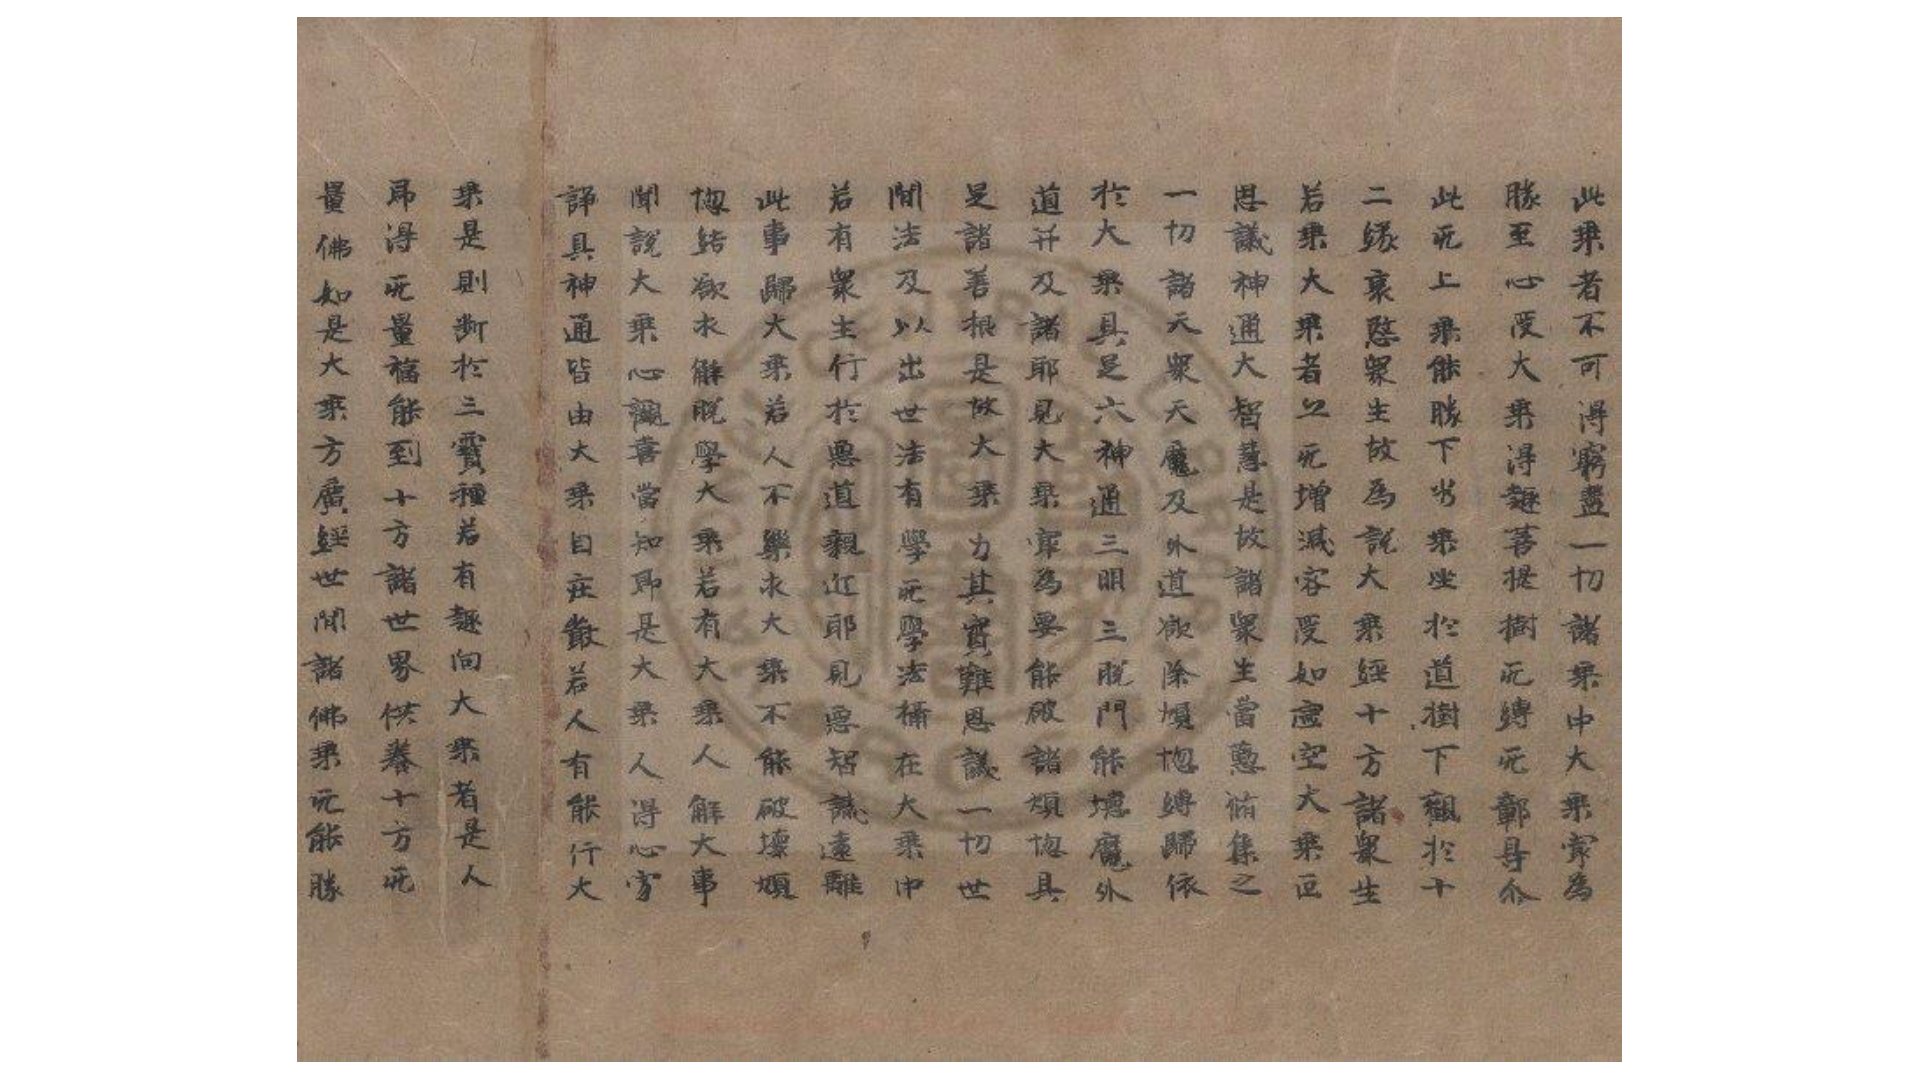 此乘者不可得窮盡一切諸乘中大乘寂為
勝至心受大乘得趣菩提樹无縛无鄣尋介
此无上乘能勝下劣乘坐於道樹下觀於十
二緣哀愍眾生故為說大乘經十方諸眾生
若乘大乘者乂无增減容受如虛空大乘叵
思議神通大智慧是故諸眾生當懃脩集之
一切諸天眾天魔及外道欲除煩惚縛歸依
於大乘具足六神通三明三脫門能壞魔外
道并及諸耶見大乘寂為要能破諸煩惚具
足諸善根是故大乘力其實難思議一切世
間法及以出世法有學无學法攝在大乘中
若有眾生行於惡道親近耶見惡知識遠離
此事歸大乘若人不樂求大乘不能破壞煩
惚結欲求解脫學大乘若有大乘人解大事
聞說大乘心歡喜當知即是大乘人得心
諍具神通皆由大乘自庄嚴若人有能行大
乘是則斷於三寶種若有趣向大乘者是人
即得无量福能到十方諸世界供養十方无
量佛如是大乘方廣經世間諸佛乘无能勝